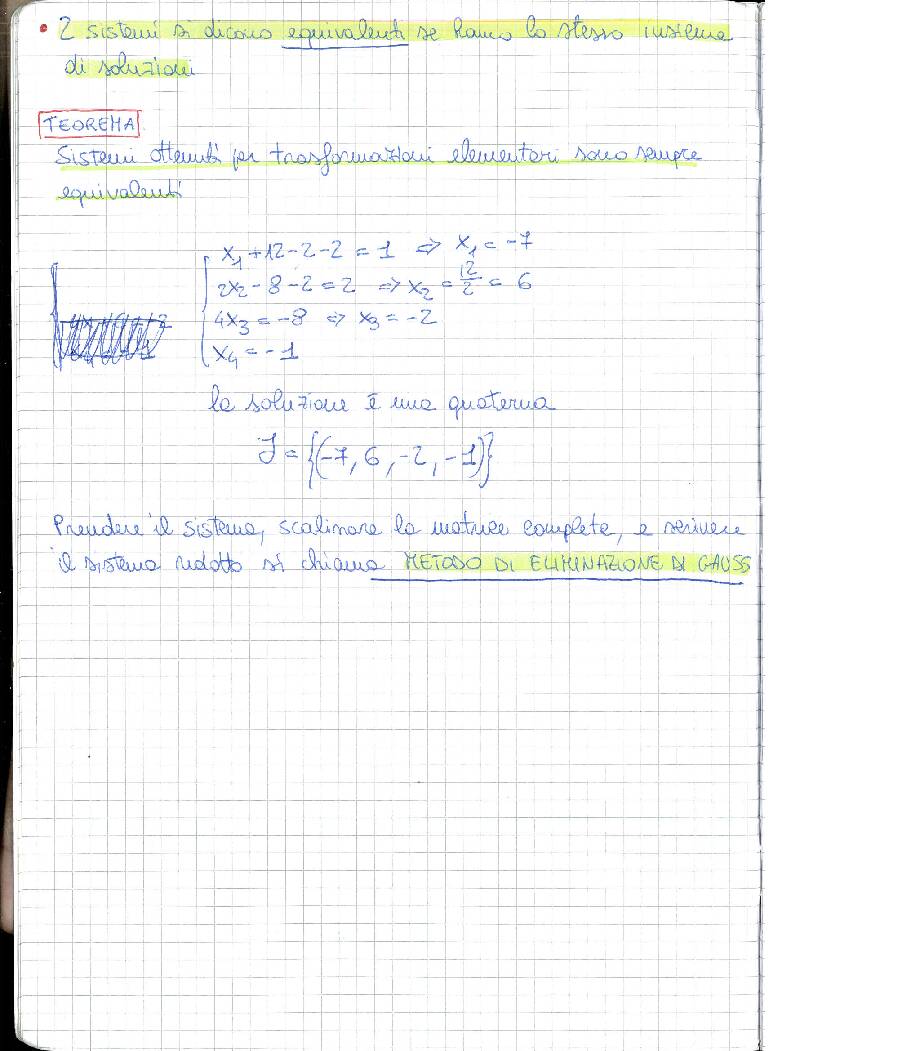 • 2 sistemi si dicono equivalenti se hanno lo stesso insieme
di soluzioni
TEOREMA
Sistemi ottenuti per trasformazioni elementari sono sempre
equivalenti
x₁ + 12 - 2 - 2 = 1 ⇒ x₁ = -7
2x₂ - 8 - 2 = 2 ⇒ x₂ = 12/2 = 6
4x₃ = -8 ⇒ x₃ = -2
x₄ = -1
la soluzione è una quaterna
S = {(-7, 6, -2, -1)}
Prendere il sistema, scalinare la matrice completa, e scrivere
il sistema ridotto si chiama METODO DI ELIMINAZIONE DI GAUSS